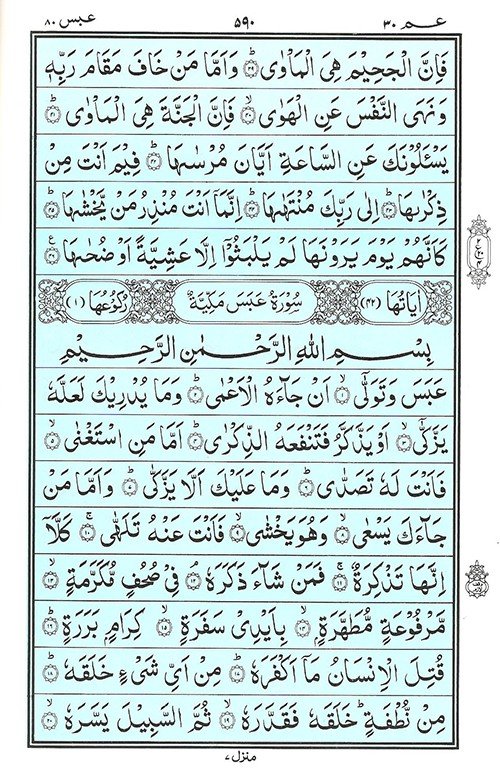 عـم ٣٠ ٥٩٠ عبس ٨٠
فَاِنَّ الْجَحِيْمَ هِيَ الْمَاْوٰى ؕ‏ ﴿۳۹﴾ وَاَمَّا مَنْ خَافَ مَقَامَ رَبِّهٖ
وَنَهَى النَّفْسَ عَنِ الْهَوٰى ۙ‏ ﴿۴۰﴾ فَاِنَّ الْجَنَّةَ هِيَ الْمَاْوٰى ؕ‏ ﴿۴۱﴾
يَسْـَٔلُوْنَكَ عَنِ السَّاعَةِ اَيَّانَ مُرْسٰىهَا ؕ‏ ﴿۴۲﴾ فِيْمَ اَنْتَ مِنْ
ذِكْرٰىهَا ؕ‏ ﴿۴۳﴾ اِلٰى رَبِّكَ مُنْتَهٰىهَا ؕ‏ ﴿۴۴﴾ اِنَّمَاۤ اَنْتَ مُنْذِرُ مَنْ يَّخْشٰىهَا ؕ‏ ﴿۴۵﴾
كَاَنَّهُمْ يَوْمَ يَرَوْنَهَا لَمْ يَلْبَثُوْۤا اِلَّا عَشِيَّةً اَوْ ضُحٰىهَا ﴿۴۶﴾
اٰيَاتُهَا (٤٢) سُوْرَةُ عَبَسَ مَكِّيَّةٌ رُكُوْعُهَا (١)
بِسْمِ اللهِ الرَّحْمٰنِ الرَّحِيْمِ
عَبَسَ وَتَوَلّٰىۤ ۙ‏ ﴿۱﴾ اَنْ جَآءَهُ الْاَعْمٰى ؕ‏ ﴿۲﴾ وَمَا يُدْرِيْكَ لَعَلَّهٗ
يَزَّكّٰىۤ ۙ‏ ﴿۳﴾ اَوْ يَذَّكَّرُ فَتَنْفَعَهُ الذِّكْرٰى ؕ‏ ﴿۴﴾ اَمَّا مَنِ اسْتَغْنٰى ۙ‏ ﴿۵﴾
فَاَنْتَ لَهٗ تَصَدّٰى ؕ‏ ﴿۶﴾ وَمَا عَلَيْكَ اَلَّا يَزَّكّٰى ؕ‏ ﴿۷﴾ وَاَمَّا مَنْ
جَآءَكَ يَسْعٰى ۙ‏ ﴿۸﴾ وَهُوَ يَخْشٰى ۙ‏ ﴿۹﴾ فَاَنْتَ عَنْهُ تَلَهّٰى ۚ‏ ﴿۱۰﴾ كَلَّاۤ
اِنَّهَا تَذْكِرَةٌ ۚ‏ ﴿۱۱﴾ فَمَنْ شَآءَ ذَكَرَهٗ ۘ‏ ﴿۱۲﴾ فِيْ صُحُفٍ مُّكَرَّمَةٍ ۙ‏ ﴿۱۳﴾
مَّرْفُوْعَةٍ مُّطَهَّرَةٍ ۙ‏ ﴿۱۴﴾ بِاَيْدِيْ سَفَرَةٍ ۙ‏ ﴿۱۵﴾ كِرَامٍ بَرَرَةٍ ؕ‏ ﴿۱۶﴾
قُتِلَ الْاِنْسَانُ مَاۤ اَكْفَرَهٗ ؕ‏ ﴿۱۷﴾ مِنْ اَيِّ شَيْءٍ خَلَقَهٗ ؕ‏ ﴿۱۸﴾
مِنْ نُّطْفَةٍ ؕ خَلَقَهٗ فَقَدَّرَهٗ ۙ‏ ﴿۱۹﴾ ثُمَّ السَّبِيْلَ يَسَّرَهٗ ۙ‏ ﴿۲۰﴾
منزل ٧